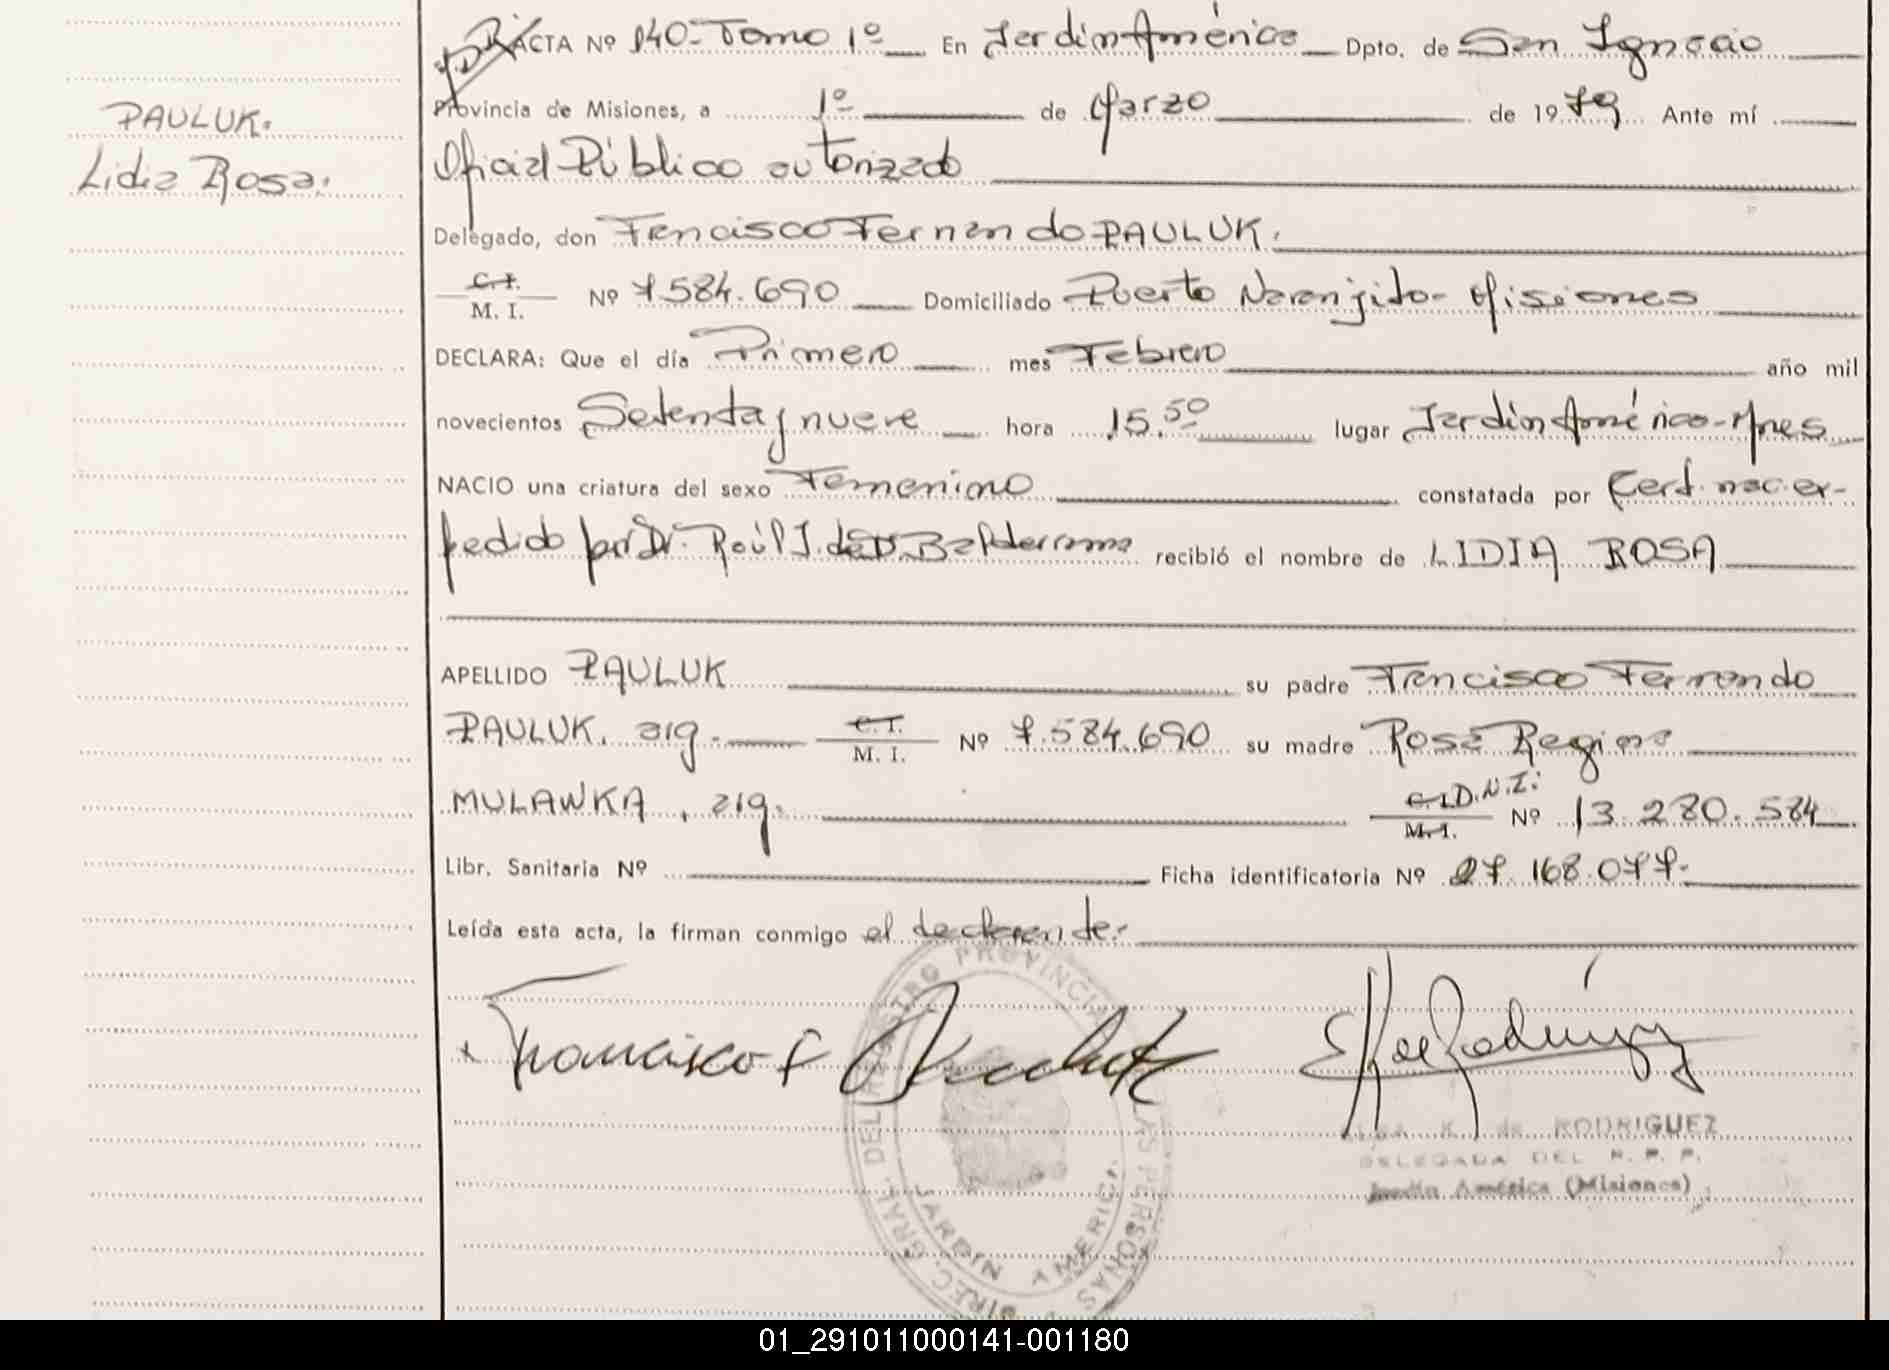 ACTA Nº 140- Tomo 1º En Jardín América Dpto. de San Ignacio
Provincia de Misiones, a 1º de Marzo de 1979 Ante mí
PAULUK.
Oficial Público autorizado
Lidia Rosa.
Delegado, don Francisco Fernando PAULUK.
C.I.
M. I. Nº 7.584.690 Domiciliado Puerto Naranjito- Misiones
DECLARA: Que el día Primero mes Febrero año mil
novecientos Setenta y nueve hora 15.50 lugar Jardín América-Mnes
NACIO una criatura del sexo Femenino constatada por Cert. nac. ex-
pedido por Dr. Raúl J. Balderrama recibió el nombre de LIDIA ROSA
APELLIDO PAULUK su padre Francisco Fernando
PAULUK, arg. C.I. M. I. Nº 7.584.690 su madre Rosa Regina
MULAWKA, arg. C.I. D.N.I. M.I. Nº 13.280.584
Libr. Sanitaria Nº Ficha identificatoria Nº 27.168.077-
Leída esta acta, la firman conmigo el declarante.
Francisco F Pauluk
DIREC. GRAL. DEL REGISTRO PROVINCIAL LAS PERSONAS
JARDIN AMERICA
K. de RODRIGUEZ
DELEGADA DEL R. P. P.
Jardín América (Misiones)
01_291011000141-001180